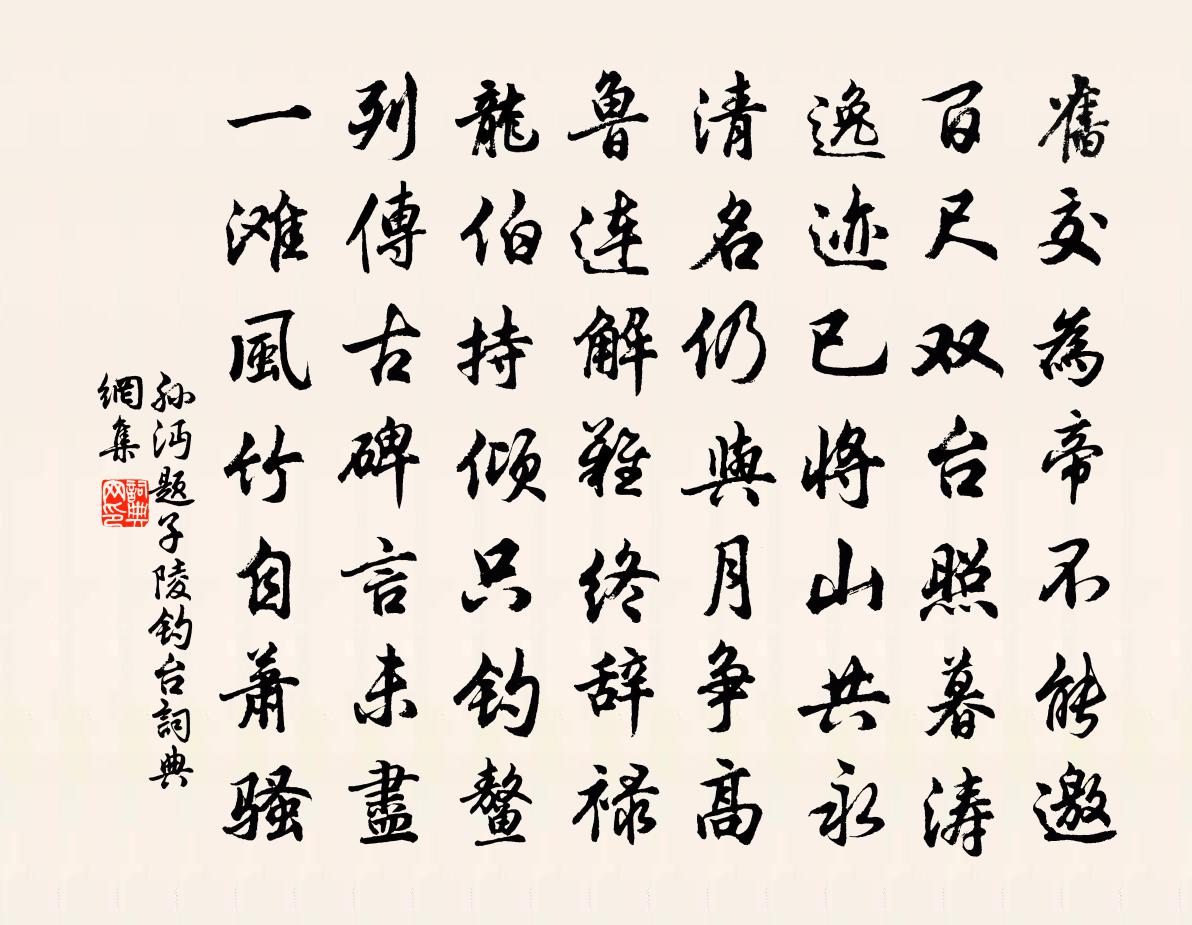 舊交為帝不能邀
百尺双台照暮涛
逸迹已将山共永
清名仍與月争高
鲁連解難终辞禄
龍伯持倾只钓鳌
列傳古碑言未盡
一滩風竹自萧骚
孙沔题子陵钓台詞典
網集
詞典
网印